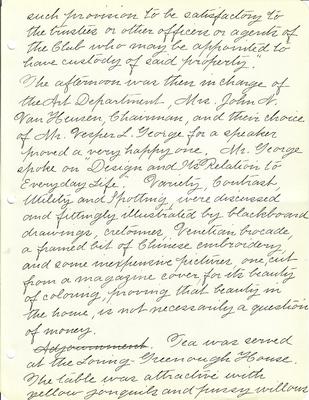 such provision to be satisfactory to
the trustees or other officers or agents of
the Club who may be appointed to
have custody of said property."
The afternoon was then in charge of
the Art Department, Mrs. John N.
Van Heusen, Chairman, and their choice
of Mr. Vesper L. George for a speaker
proved a very happy one. Mr. George
spoke on "Design and Its Relation to
Everyday Life". Variety, Contrast,
Utility and Spotting, were discussed
and fittingly illustrated by blackboard
drawings, cretonnes, Venetian brocade,
a framed bit of Chinese embroidery
and some inexpensive pictures, one, cut
from a magazine cover for its beauty
of coloring, proving that beauty in
the home, is not necessarily a question
of money.
Adjournment. Tea was served
at the Loring-Greenough House.
The table was attractive with
yellow jonquils and pussy willows